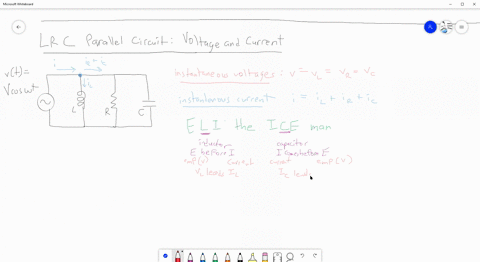 Microsoft Whiteboard
LRC Parallel Circuit: Voltage and Current
i
v(t)=
V cos ωt
L
R
C
instantaneous voltages: v = v_L = v_R = v_C
instantaneous current i = i_L + i_R + i_C
ELI the ICE man
inductor capacitor
E before I I before E
emf (v) current current emf (v)
V_L leads I_L I_C lead